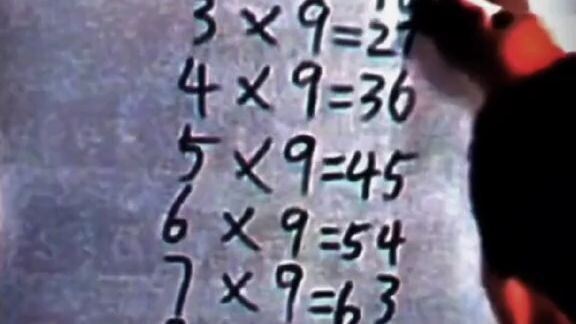 3×9=27
4×9=36
5×9=45
6×9=54
7×9=63